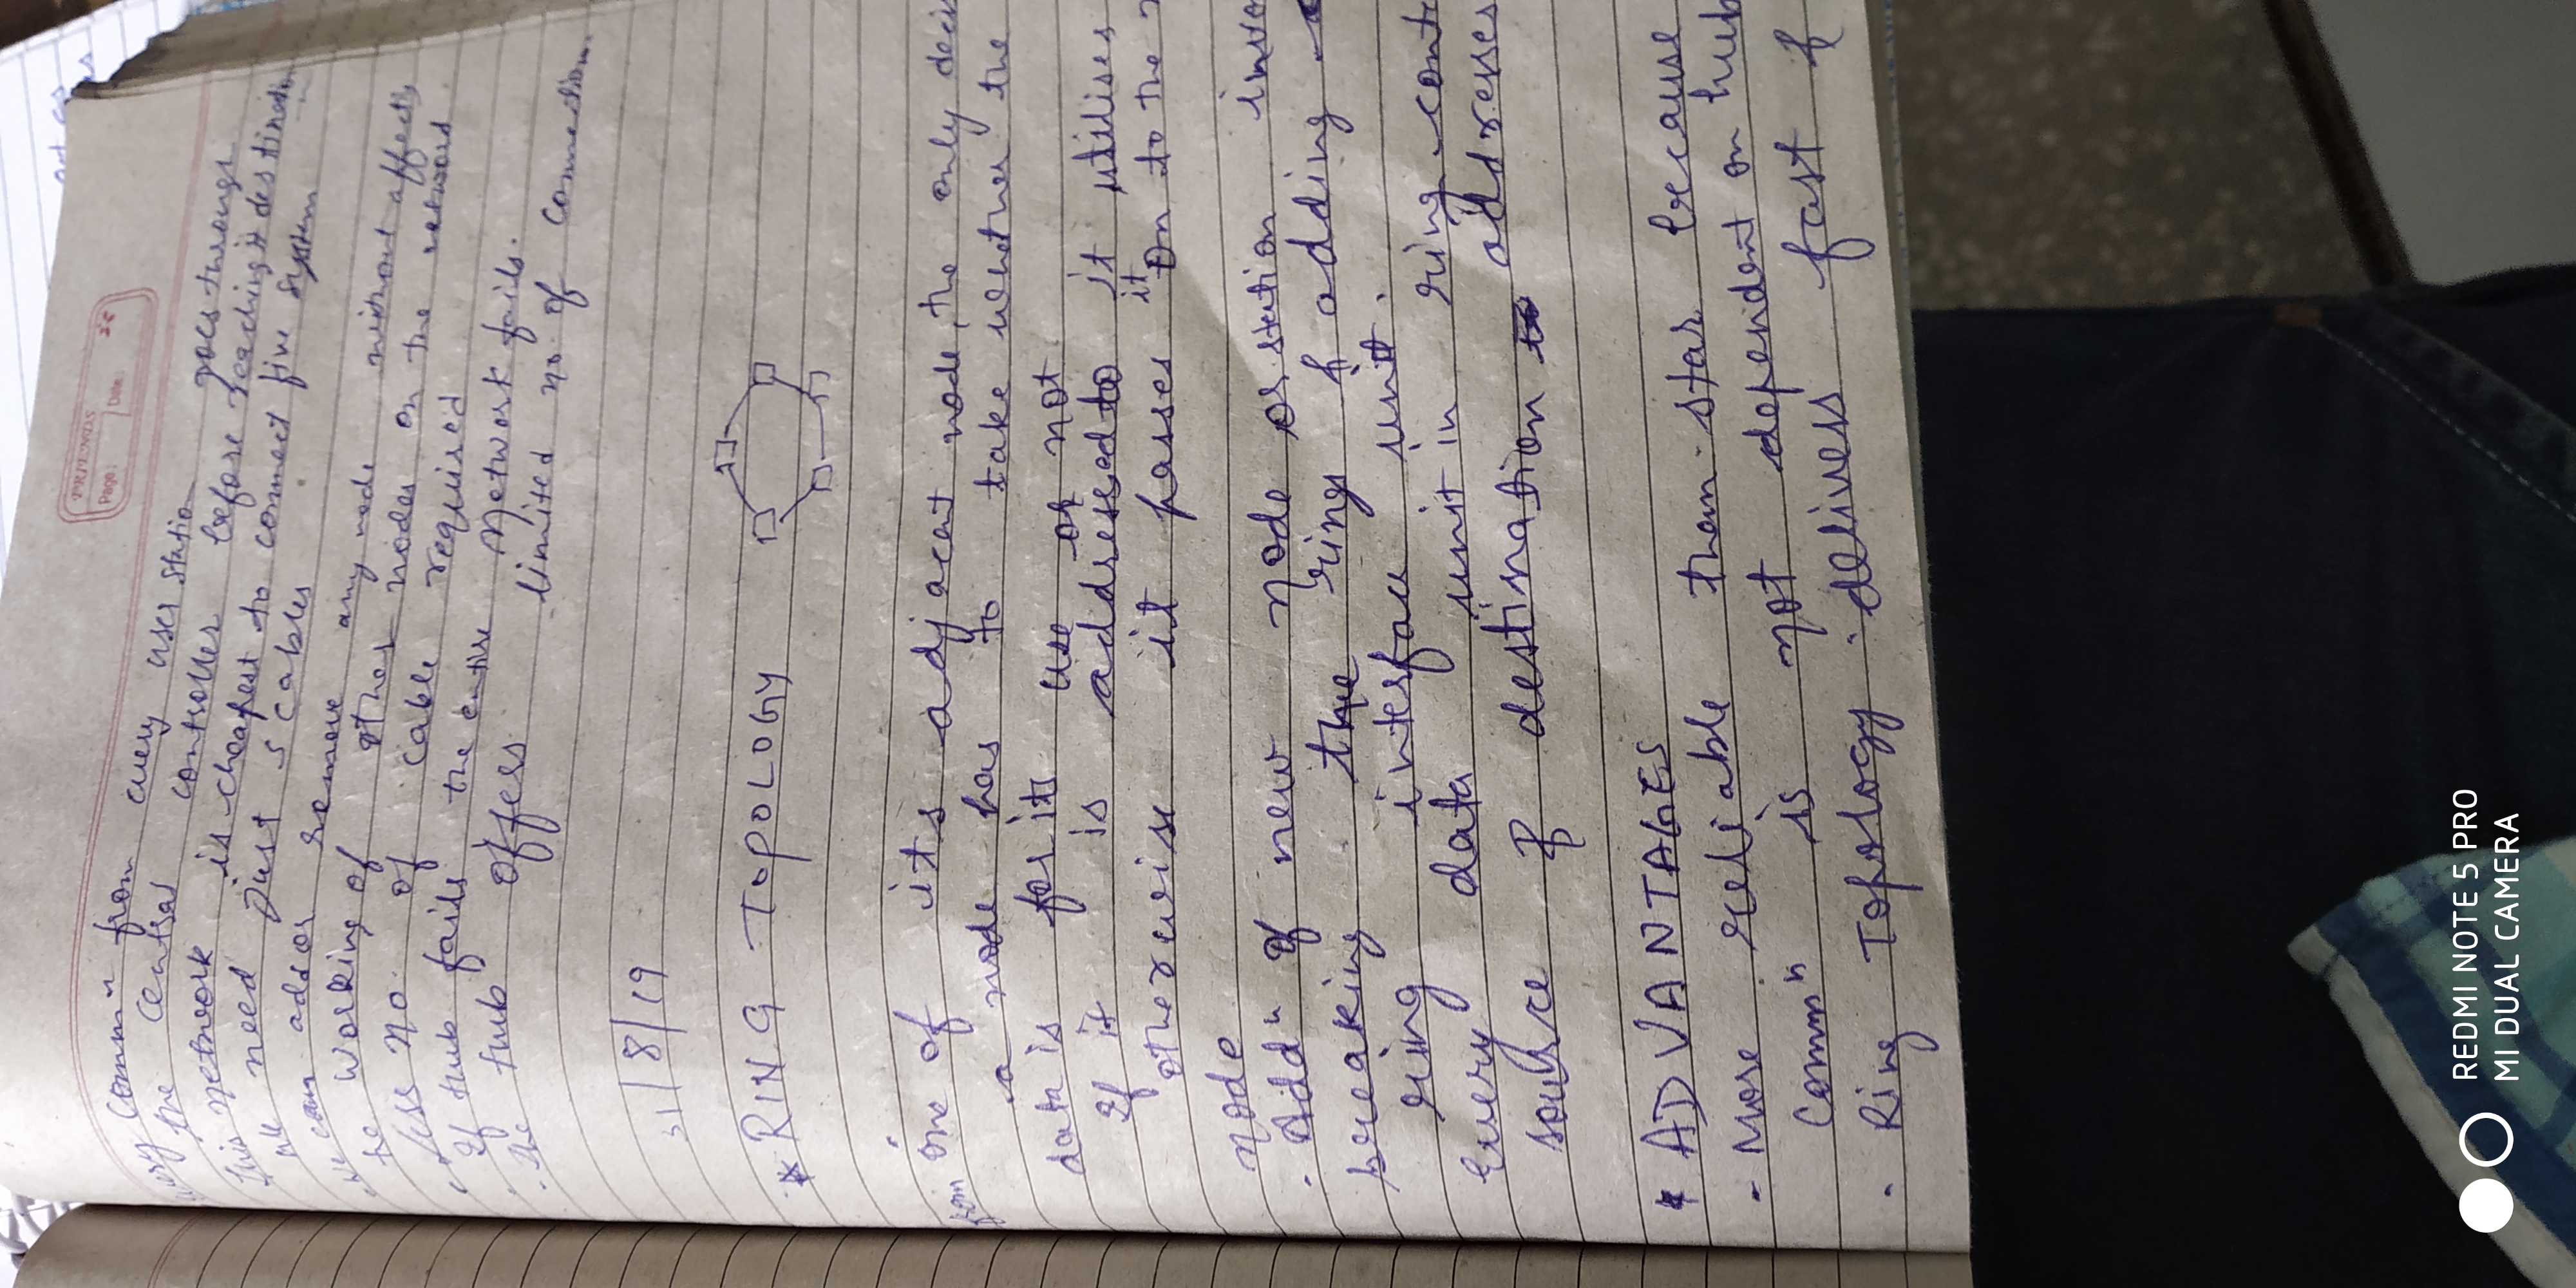 FRIENDS
Page: Date:
every Commn from every user station goes through
the central controller before reaching it destination
This network is cheapest to connect five system
we need just 5 cables
- We can add or remove any node without affectig
the working of other nodes on the netword.
- less no. of cable required
- If hub fails, the entire Network fails.
- The hub offers limited no. of Connection.
31/8/19
* RING TOPOLOGY
from one of its adjacent node, the only deci
a node has to take whether the
data is for its use or not
If it is addressed to it utilises
otherwise it passes it on to the n
node
- Addn of new node or station invo
breaking the rings & adding a
ring interface unit.
Every data unit in ring conta
source & destination addresses
* ADVANTAGES
- More reliable than star because
Commn is not dependent on hub
- Ring Topology delivers fast &
REDMI NOTE 5 PRO
MI DUAL CAMERA